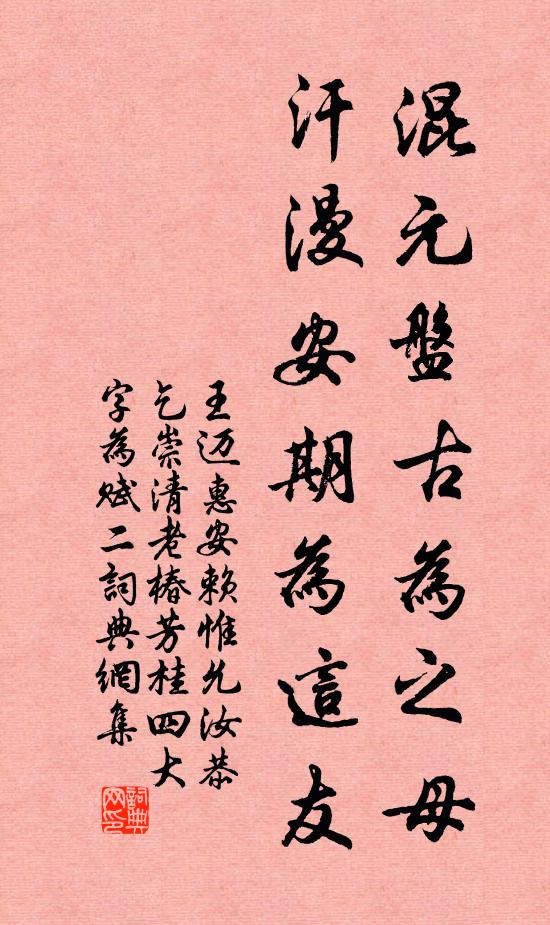 混元盤古為之母
汗漫安期為這友
王迈惠安賴惟允汝恭
乞崇清老椿芳桂四大
字為赋二詞典網集
詞典网印